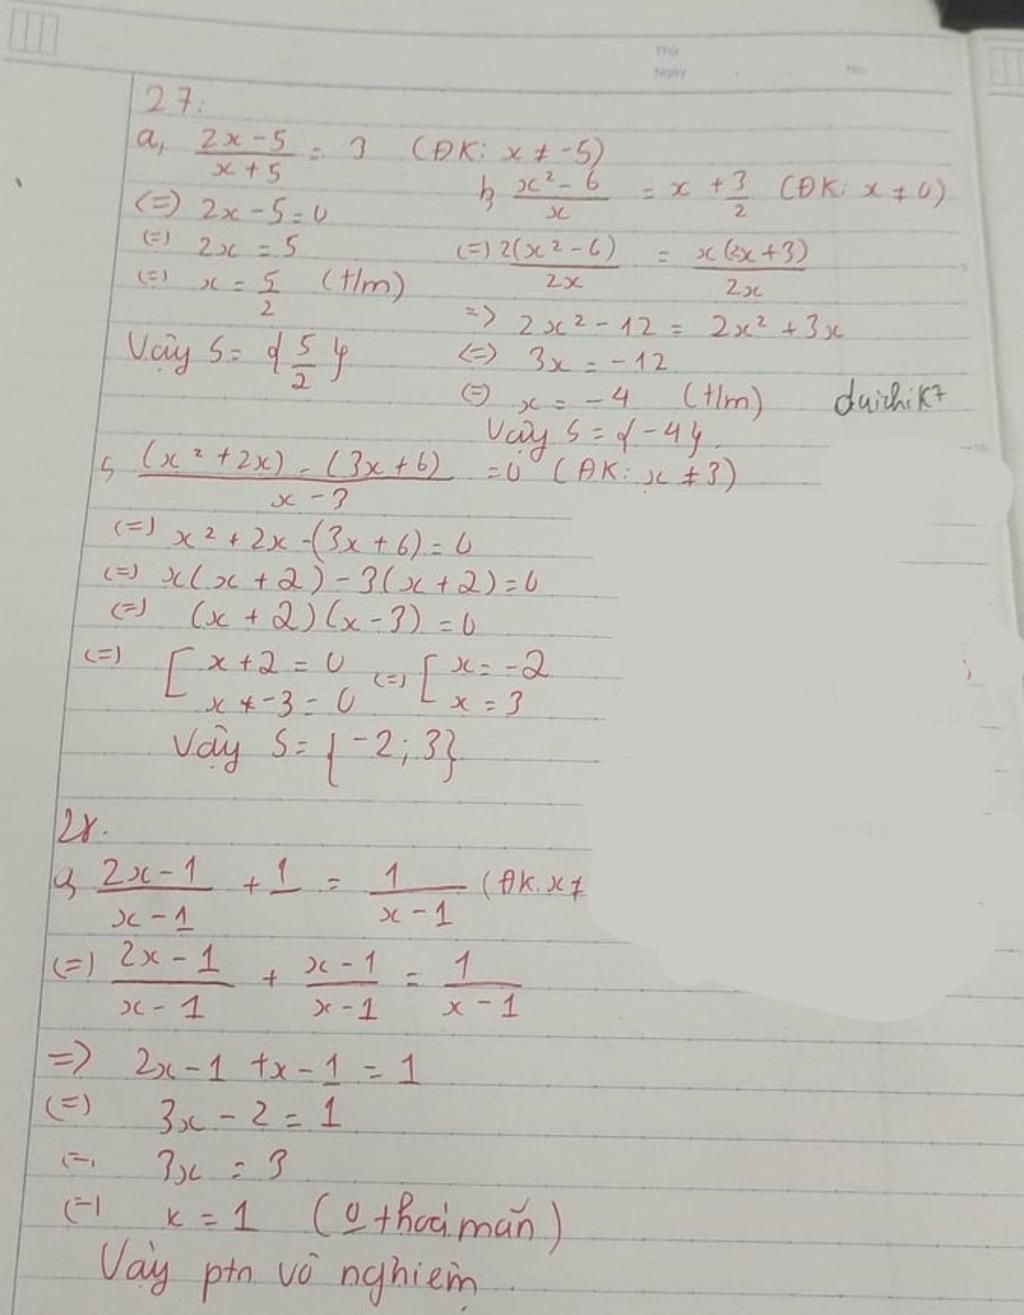 Thứ
Ngày
No.
27:
a, (2x - 5)/(x + 5) = 3 (ĐK: x ≠ -5)
(=) 2x - 5 = 0
(=) 2x = 5
(=) x = 5/2 (t/m)
Vậy S = {5/2}
b, (x² - 6)/x = x + 3/2 (ĐK: x ≠ 0)
(=) 2(x² - 6)/2x = x(2x + 3)/2x
=> 2x² - 12 = 2x² + 3x
(=) 3x = -12
(=) x = -4 (t/m)
Vậy S = {-4}
duichik7
c, ((x² + 2x) - (3x + 6))/(x - 3) = 0 (ĐK: x ≠ 3)
(=) x² + 2x - (3x + 6) = 0
(=) x(x + 2) - 3(x + 2) = 0
(=) (x + 2)(x - 3) = 0
(=) [ x + 2 = 0 (=) [ x = -2
x - 3 = 0 x = 3
Vậy S = {-2; 3}
28.
a, (2x - 1)/(x - 1) + 1 = 1/(x - 1) (ĐK. x ≠
(=) (2x - 1)/(x - 1) + (x - 1)/(x - 1) = 1/(x - 1)
=> 2x - 1 + x - 1 = 1
(=) 3x - 2 = 1
(=) 3x = 3
(=) x = 1 (0 thoả mãn)
Vậy ptn vô nghiệm.